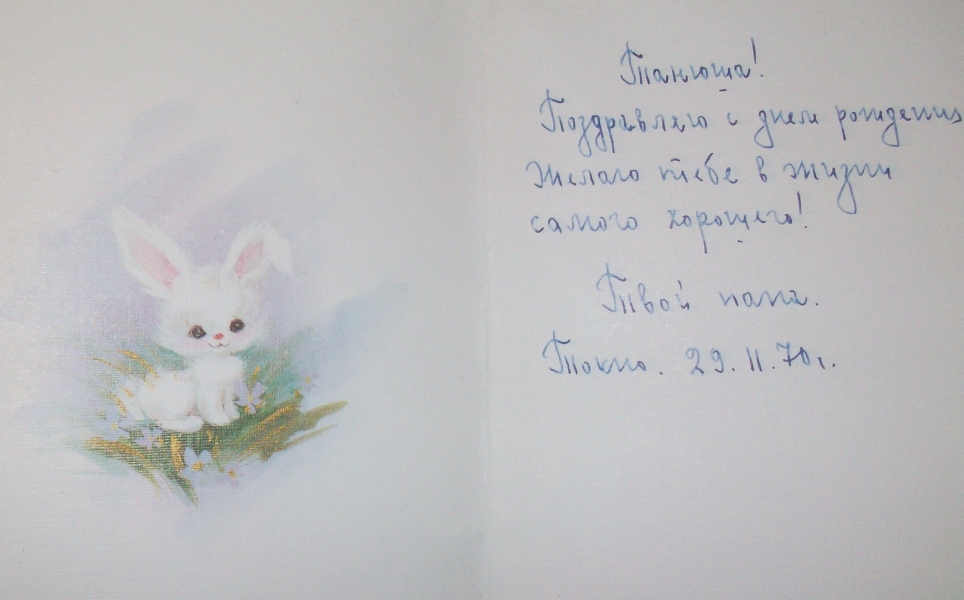 Танюша!
Поздравляю с днем рождения
Желаю тебе в жизни
самого хорошего!
Твой папа.
Токио. 29.11.70г.